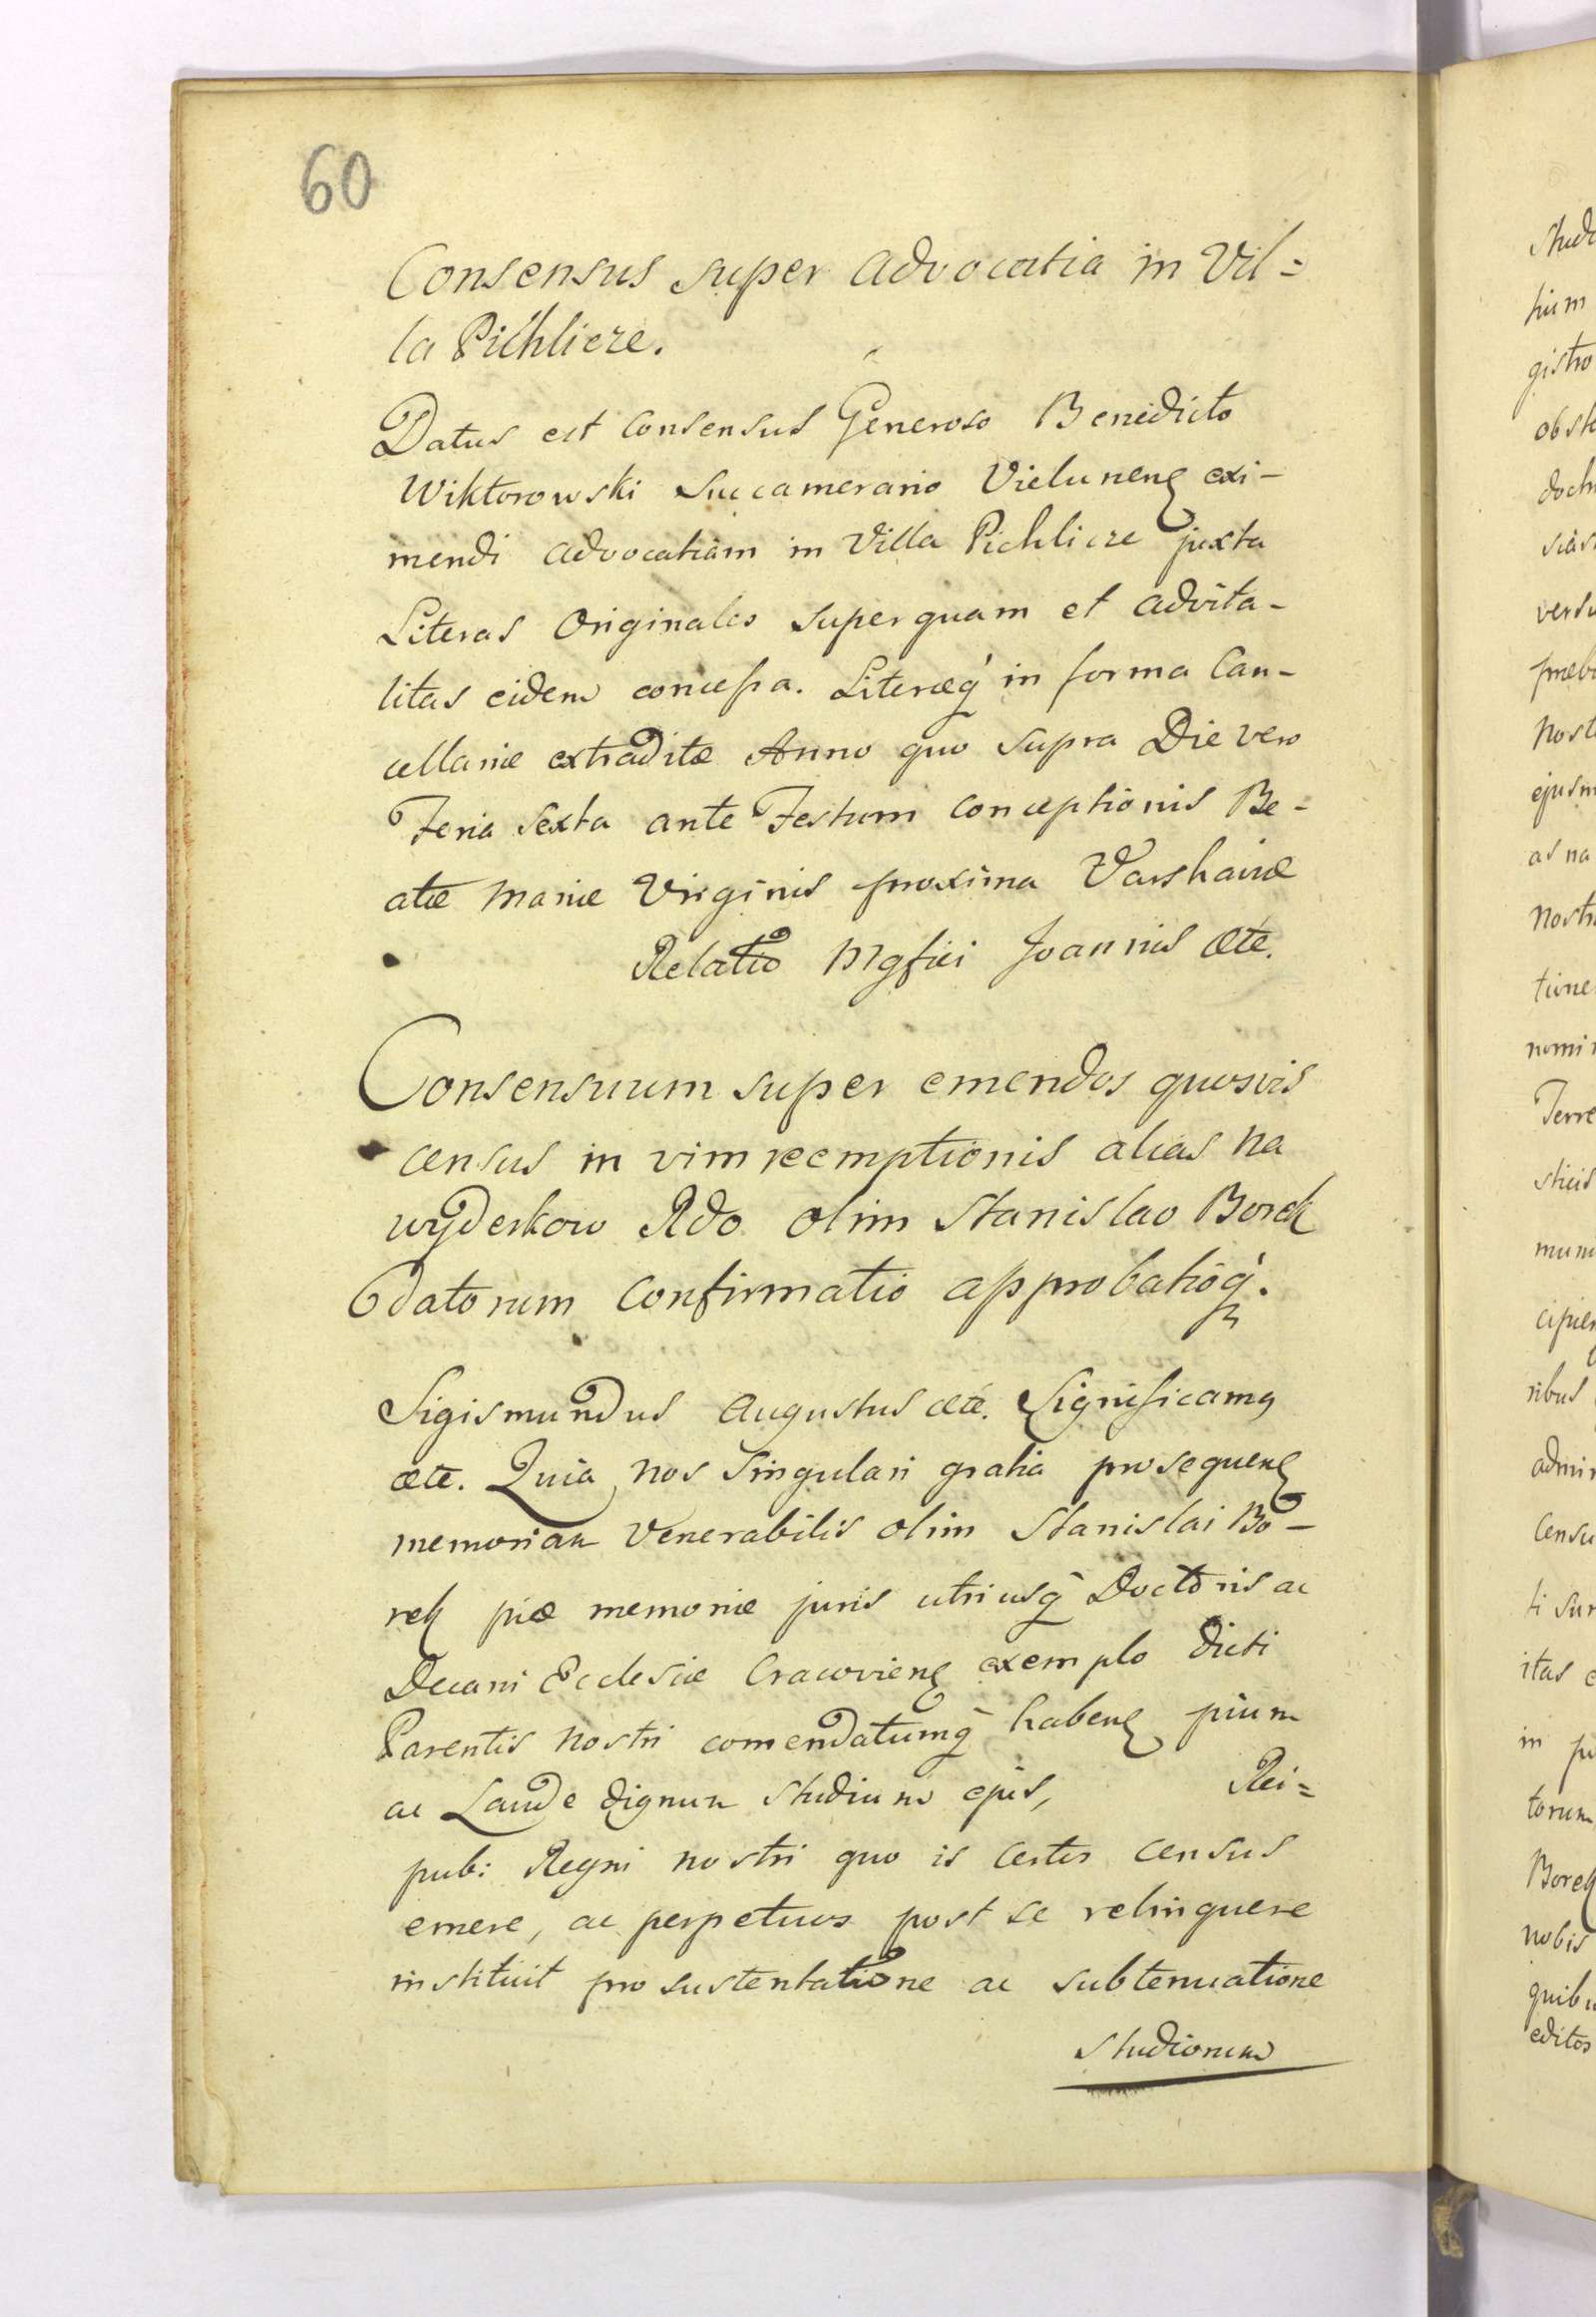 60
Consensus super advocatia in Vil=
la Pichlicze.
Datus est consensus Generoso Benedicto
Wiktorowski Succamerario Vielunenȩ exi-
mendi advocatiam in Villa Pichlicze juxta
Literas Originales superquam et advita-
litas eidem concessa. Literæq́ in forma Can-
cellariæ extraditæ Anno quo supra Die vero
Feria Sexta ante Festum conceptionis Be-
atæ Mariæ Virginis proxima Varshaviæ
Relatio Mgfici Joannis ætc.
Consensuum super emendos quosvis
census in vim reemptionis alias na
wyderkow Rdo olim Stanislao Borek
datorum confirmatio approbatioq́.
Sigismundus Augustus ætc. Significamȩ
ætc. Quia nos singulari gratia prosequenȩ
memoriam Venerabilis olim Stanislai Bo-
rek piæ memoriæ juris utriusq́ Doctoris ac
Decani Ecclesiæ Cracovienȩ exemplo dicti
Parentis nostri comendatumq́ habenȩ pium
ac Laude dignum studium ejus, Rei=
pub: Regni nostri quo is certos census
emere, ac perpetuos post se relinquere
instituit pro sustentatione ac subtenuatione
studiorum